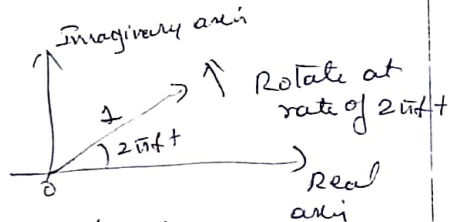 Imaginary axis
Rotate at
rate of 2πft
1
2πft
0
Real
axis